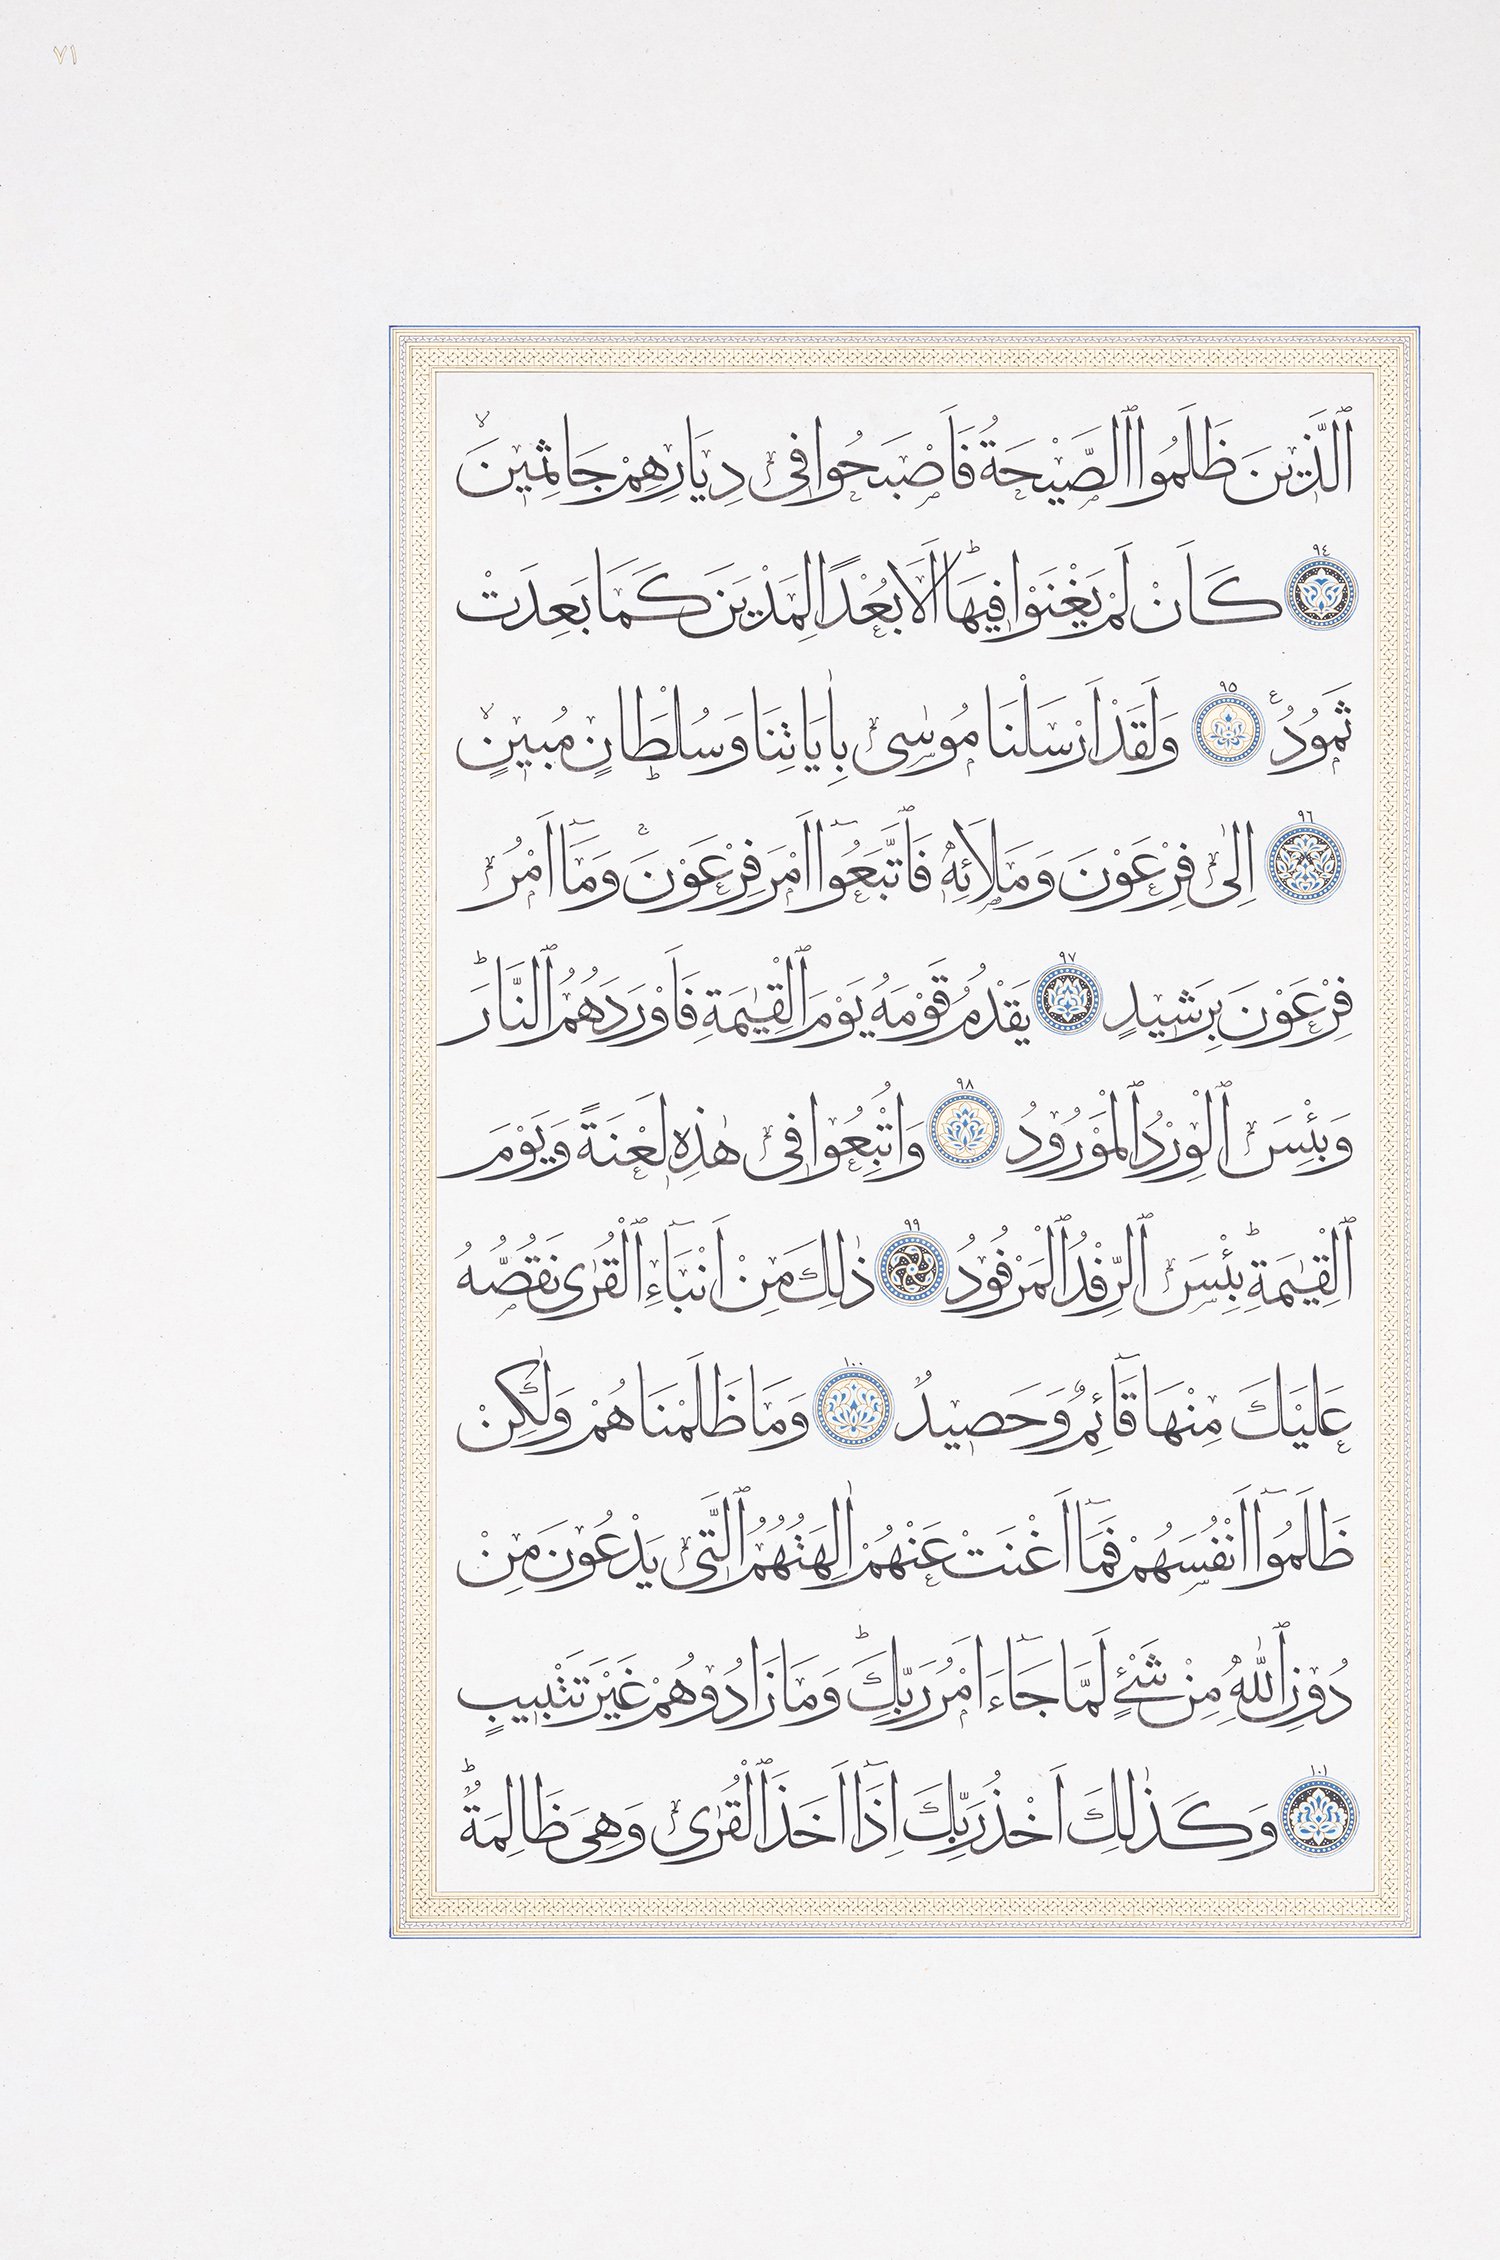 ٧١
ٱلَّذ۪ينَ ظَلَمُوا ٱلصَّيْحَةُ فَاَصْبَحُوا ف۪ى دِيَارِهِمْ جَاثِم۪ينَۙ
٩٤ كَاَنْ لَمْ يَغْنَوْا ف۪يهَاۜ اَلَا بُعْدًا لِمَدْيَنَ كَمَا بَعِدَتْ
ثَمُودُ ٩٥ وَلَقَدْ اَرْسَلْنَا مُوسٰى بِاٰيَاتِنَا وَسُلْطَانٍ مُب۪ينٍۙ
٩٦ اِلٰى فِرْعَوْنَ وَمَلَائِه۪ فَٱتَّبَعُٓوا اَمْرَ فِرْعَوْنَۚ وَمَٓا اَمْرُ
فِرْعَوْنَ بِرَش۪يدٍ ٩٧ يَقْدُمُ قَوْمَهُ يَوْمَ ٱلْقِيٰمَةِ فَاَوْرَدَهُمُ ٱلنَّارَۜ
وَبِئْسَ ٱلْوِرْدُ ٱلْمَوْرُودُ ٩٨ وَاُتْبِعُوا ف۪ى هٰذِه۪ لَعْنَةً وَيَوْمَ
ٱلْقِيٰمَةِۜ بِئْسَ ٱلرِّفْدُ ٱلْمَرْفُودُ ٩٩ ذٰلِكَ مِنْ اَنْبَٓاءِ ٱلْقُرٰى نَقُصُّهُ
عَلَيْكَ مِنْهَا قَٓائِمٌ وَحَص۪يدٌ ١٠٠ وَمَا ظَلَمْنَاهُمْ وَلٰكِنْ
ظَلَمُٓوا اَنْفُسَهُمْ فَمَٓا اَغْنَتْ عَنْهُمْ اٰلِهَتُهُمُ ٱلَّت۪ى يَدْعُونَ مِنْ
دُونِ ٱللّٰهِ مِنْ شَىْءٍ لَمَّا جَٓاءَ اَمْرُ رَبِّكَۜ وَمَا زَادُوهُمْ غَيْرَ تَتْب۪يبٍ
١٠١ وَكَذٰلِكَ اَخْذُ رَبِّكَ اِذَٓا اَخَذَ ٱلْقُرٰى وَهِىَ ظَالِمَةٌۜ